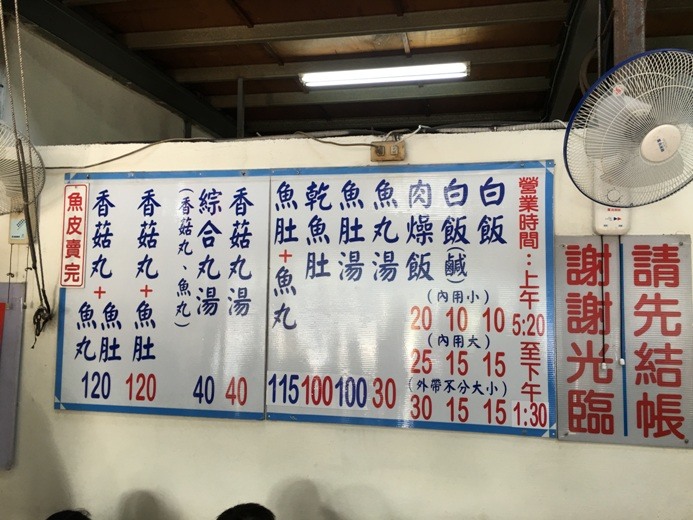 請先結帳
謝謝光臨
營業時間：上午5:20至下午1:30
白飯
白飯(鹹)
肉燥飯
(內用小)
20 10 10
(內用大)
25 15 15
(外帶不分大小)
30 15 15
魚丸湯 30
魚肚湯 100
乾魚肚 100
魚肚+魚丸 115
香菇丸湯 40
綜合丸湯 40
(香菇丸、魚丸)
香菇丸+魚肚 120
香菇丸+魚肚魚丸 120
魚皮賣完